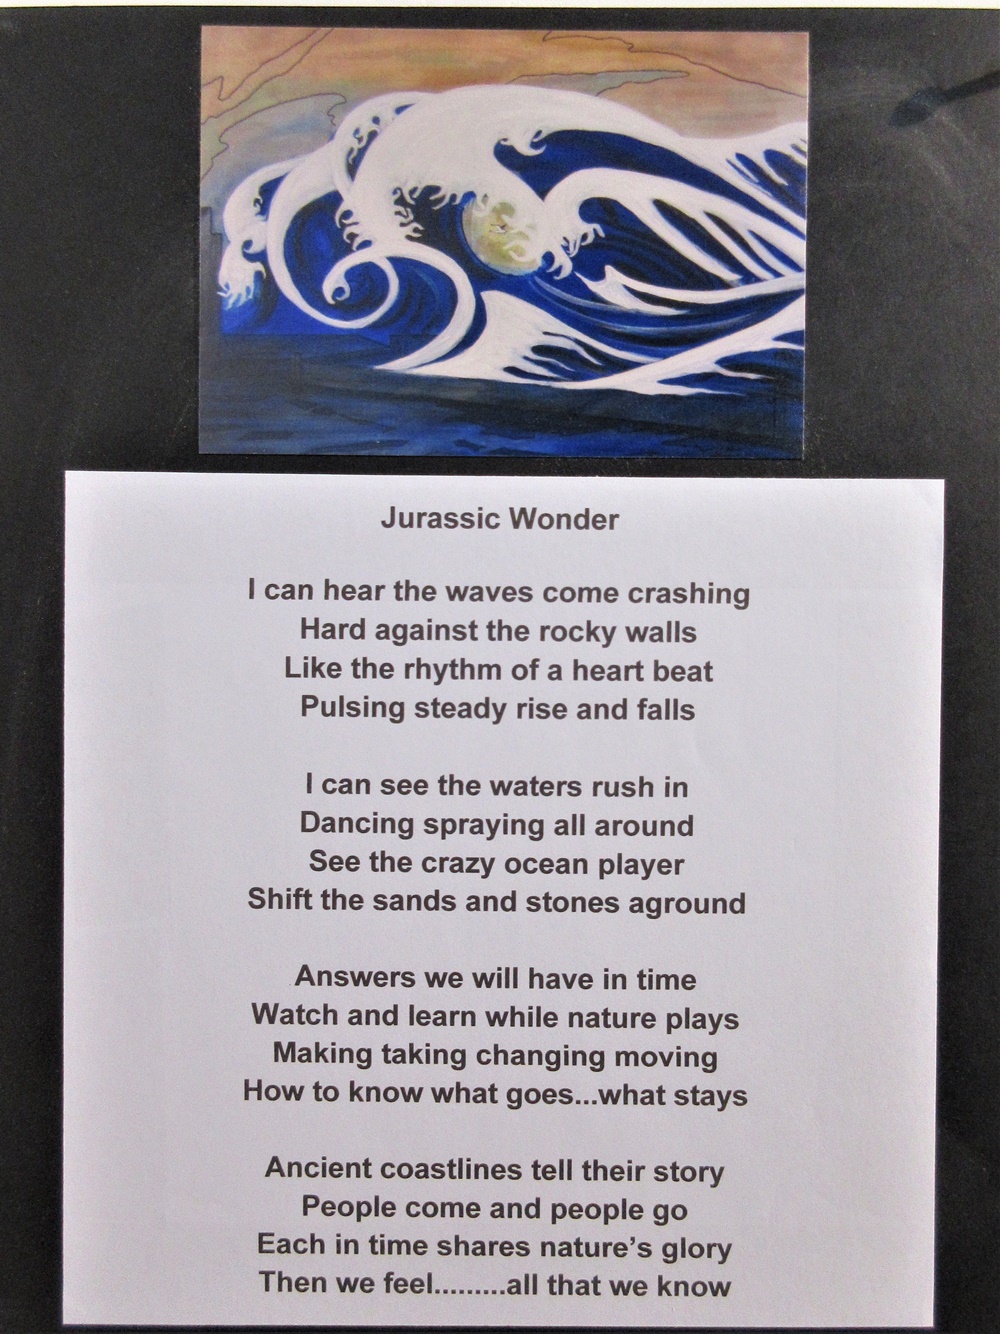 Jurassic Wonder
I can hear the waves come crashing
Hard against the rocky walls
Like the rhythm of a heart beat
Pulsing steady rise and falls
I can see the waters rush in
Dancing spraying all around
See the crazy ocean player
Shift the sands and stones aground
Answers we will have in time
Watch and learn while nature plays
Making taking changing moving
How to know what goes...what stays
Ancient coastlines tell their story
People come and people go
Each in time shares nature's glory
Then we feel.........all that we know